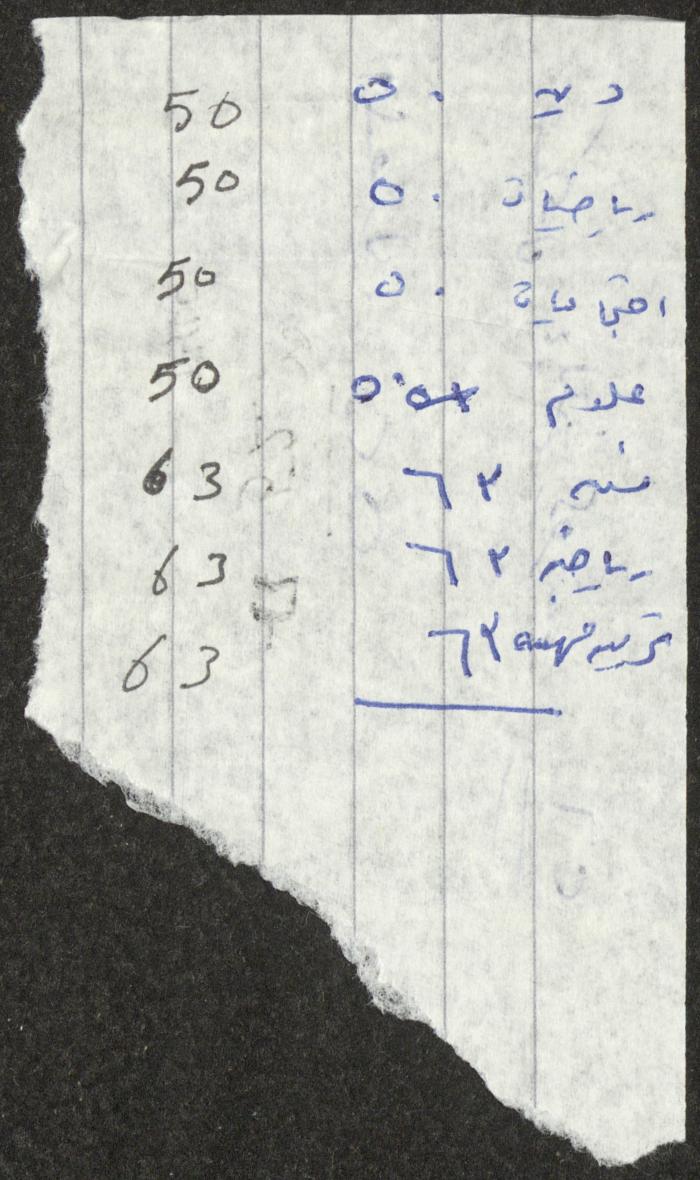 دين ٥٠ 50
رياضيات ٥٠ 50
اجتماعيات ٥٠ 50
علوم ٥٠ 50
فنية ٦٣ 63
رياضة ٦٣ 63
تربية مهنية ٦٣ 63